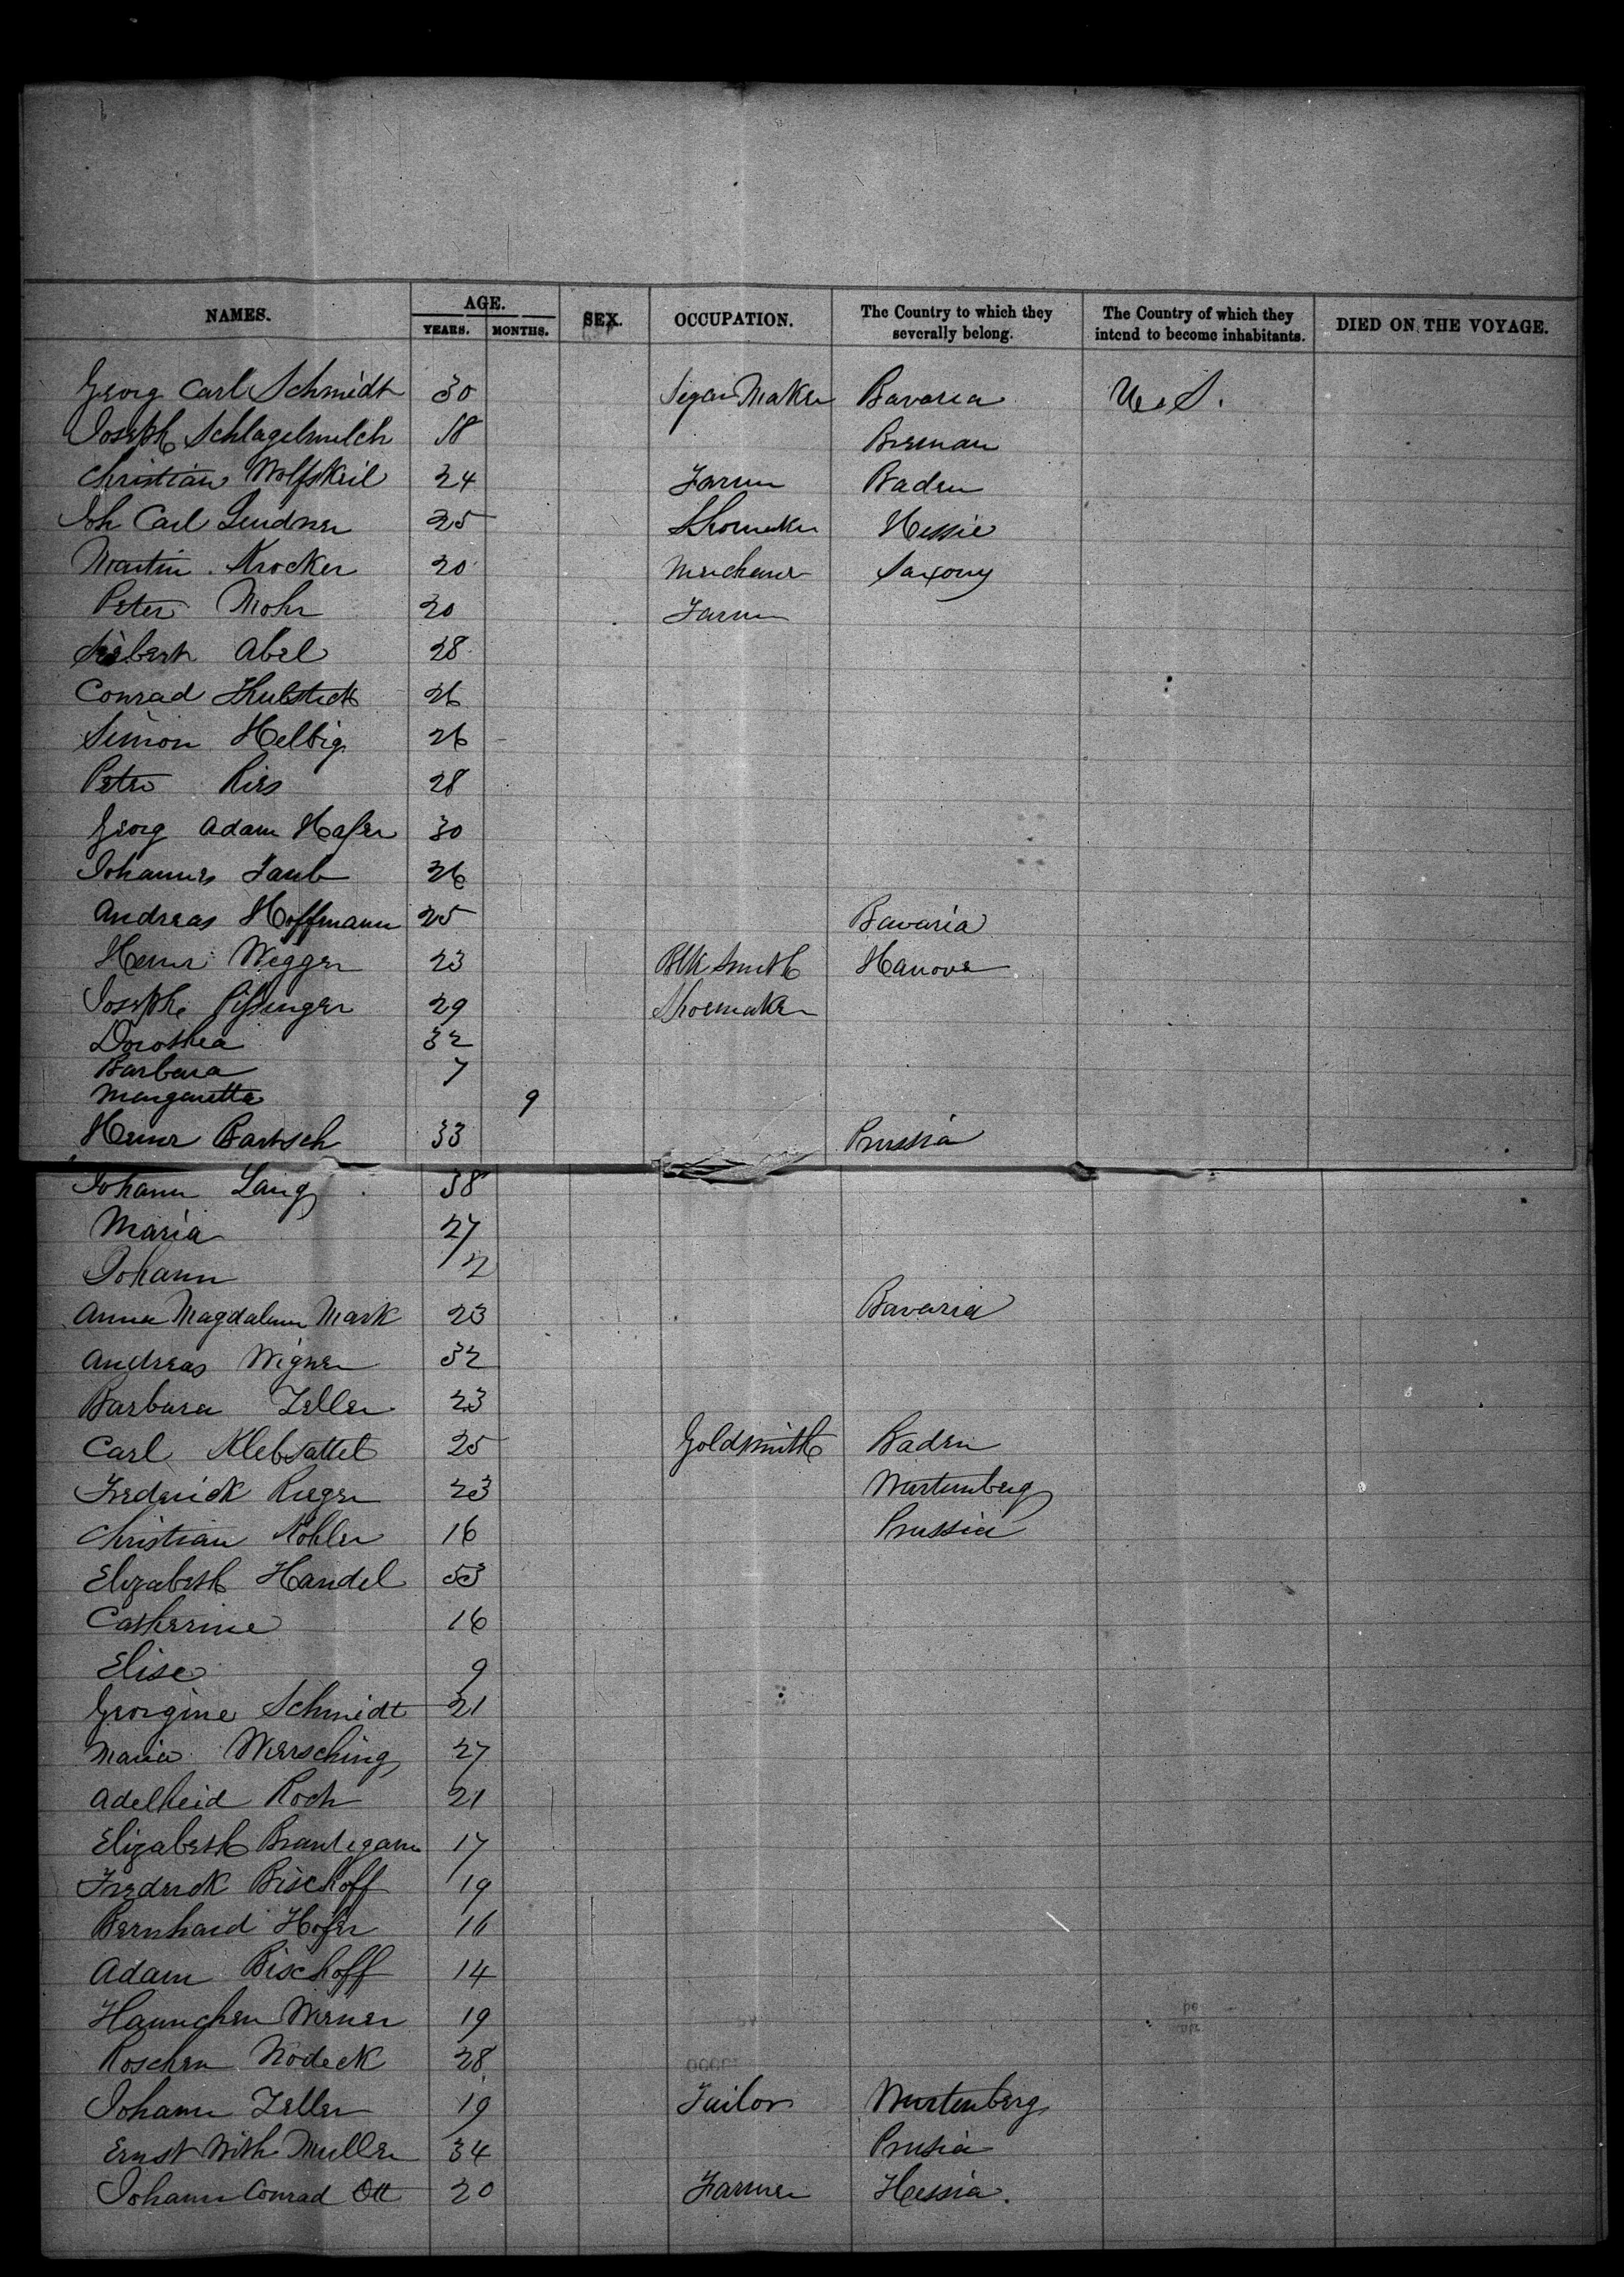 NAMES. AGE. SEX. OCCUPATION. The Country to which they severally belong. The Country of which they intend to become inhabitants. DIED ON THE VOYAGE.
YEARS. MONTHS.
Georg Carl Schmidt 30 Segar Maker Bavaria U.S.
Joseph Schlagelmilch 18 Breman
Christian Wolfskeil 24 Farmer Baden
Joh Carl Lindner 25 Shoemaker Hessie
Martin Krocker 20 Saxony
Peter Mohr 20 Farmer
Abel 28
Conrad 26
Simon Helbig 26
Peter Ries 28
Georg Adam Hafer 30
Johannes Taub 26
Andreas Hoffmann 25 Bavaria
Heinr Wegger 23 Blk Smith Hanover
Joseph 29 Shoemaker
Dorothea 32
Barbara 7
Margaretta 9
Heinr Bartsch 33 Prussia
Johann Lang 38
Maria 27
Johann
Anna Magdalena Mark 23 Bavaria
Andreas Wigner 32
Barbara Zeller 23
Carl Klebsattel 25 Goldsmith Baden
Frederick Rieger 23 Wurtemberg
Christian Kohler 16 Prussia
Elizabeth Handel 53
Catherine 16
Elise 9
Georgine Schmidt 21
Maria Wersching 27
Adelheid Koch 21
Elizabeth 17
Frederick Bischoff 19
Bernhard Hofer 16
Adam Bischoff 14
Hannchen Werner 19
Roschen Nodeck 28
Johann Zeller 19 Tailor Wurtenberg
Ernst Wilh Muller 34 Prusia
Johann Conrad Ott 20 Farmer Hessia.